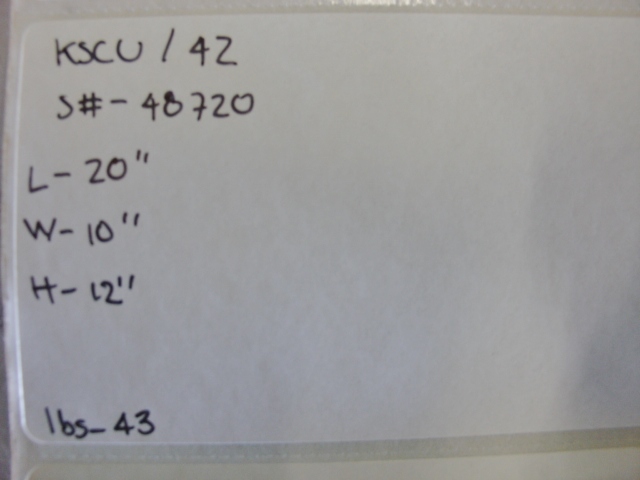 KSCU / 42
S#- 48720
L- 20"
W- 10"
H- 12"
lbs- 43